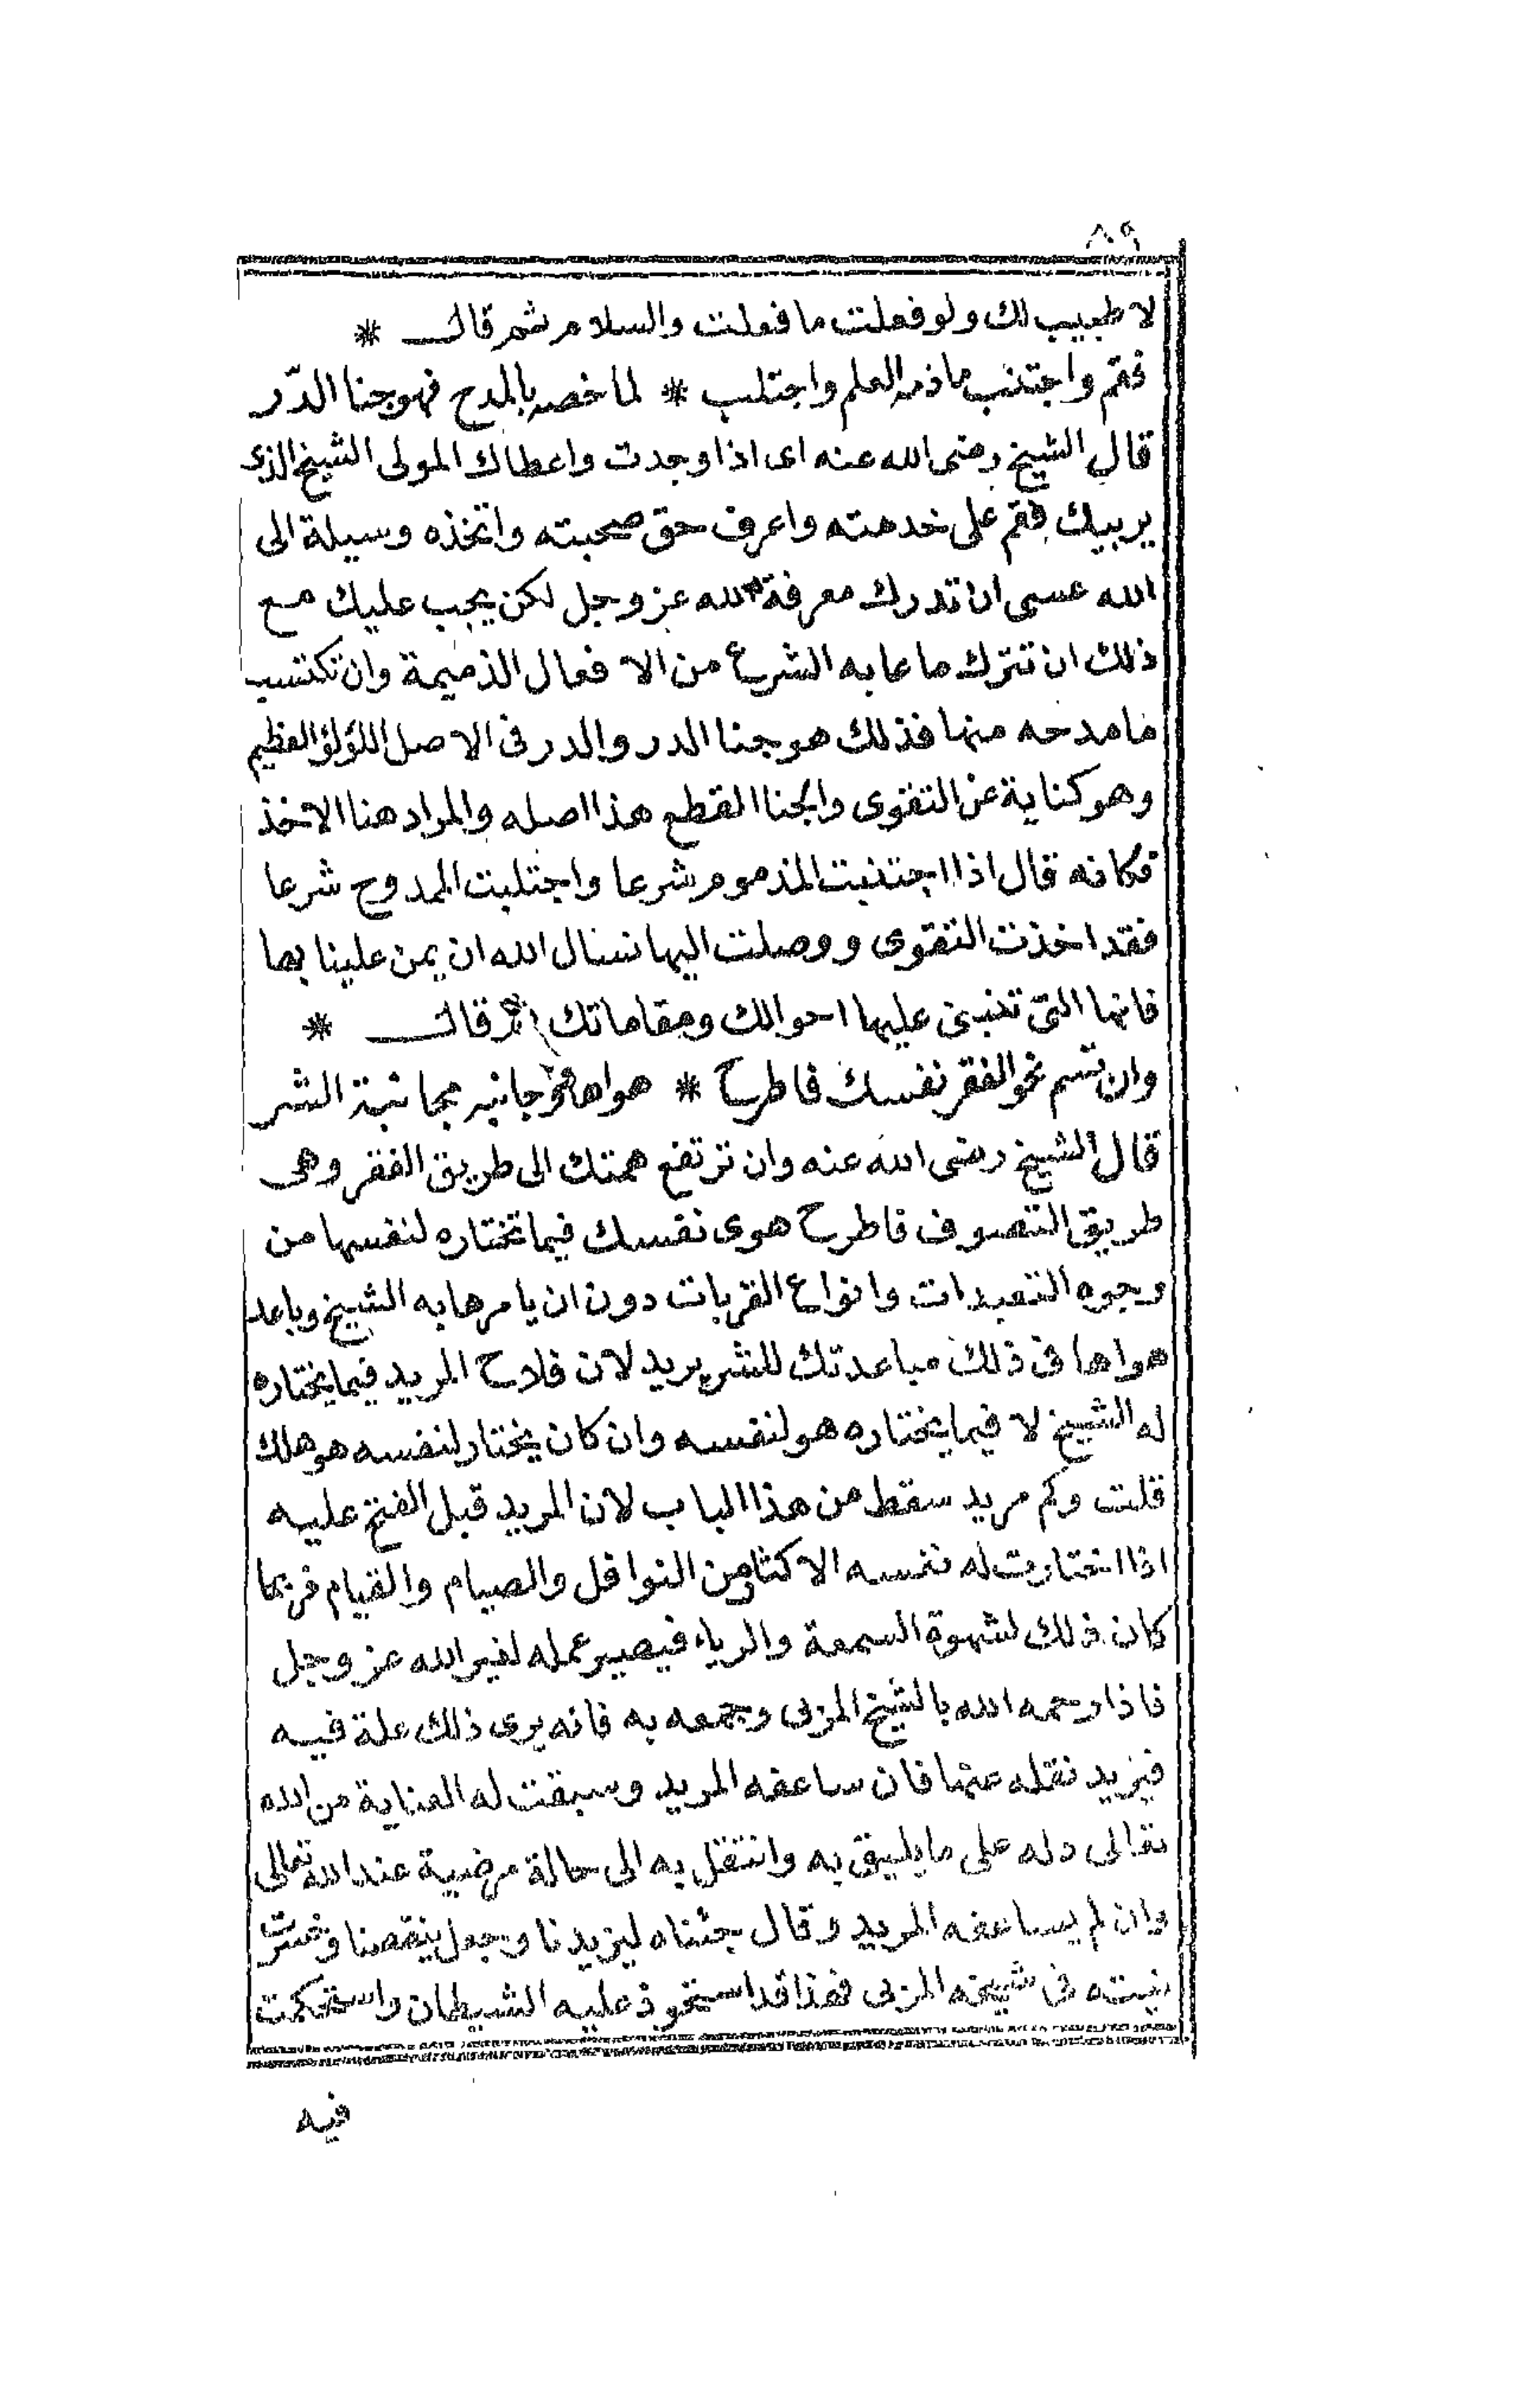 ٨٩
لا طبيب لك ولو فعلت ما فعلت والسلام ثم قال *
فقم واجتنب ما ذمه العلم واجتلب * لما خصه بالمدح فهو جنا الدّر
قال الشيخ رضى الله عنه اى اذا وجدت واعطاك المولى الشيخ الذى
يربيك فقم على خدمته واعرف حق صحبته واتخذه وسيلة الى
الله عسى ان تدرك معرفة الله عز وجل لكن يجب عليك مع
ذلك ان تترك ما عابه الشرع من الافعال الذميمة وان تكتسب
ما مدحه منها فذلك هو جنا الدر والدر فى الاصل اللؤلؤ العظيم
وهو كناية عن التقوى والجنا القطع هذا اصله والمراد هنا الاخذ
فكانه قال اذا اجتنبت المذموم شرعا واجتلبت الممدوح شرعا
فقد اخذت التقوى ووصلت اليها نسال الله ان يمن علينا بها
فانها التى تنبنى عليها احوالك ومقاماتك ثم قال *
وان تسم نحو الفقر نفسك فاطرح * هواها وجانبه مجانبة الشر
قال الشيخ رضى الله عنه وان ترتفع همتك الى طريق الفقر وهى
طريق التصوف فاطرح هوى نفسك فيما تختاره لنفسها من
وجوه التعبدات وانواع القربات دون ان يامرها به الشيخ وباعد
هواها فى ذلك مباعدتك للشر يريد لان فلاح المريد فيما يختاره
له الشيخ لا فيما يختاره هو لنفسه وان كان يختار لنفسه هو هلك
قلت وكم مريد سقط من هذا الباب لان المريد قبل الفتح عليه
اذا اختارت له نفسه الاكثار من النوافل والصيام والقيام فربما
كان ذلك لشهوة السمعة والرياء فيصير عمله لغير الله عز وجل
فاذا رحمه الله بالشيخ المربى وجمعه به فانه يرى ذلك علة فيه
فيريد نقله عنها فان ساعفه المريد وسبقت له العناية من الله
تعالى دله على ما يليق به وانتقل به الى حالة مرضية عند الله تعالى
وان لم يساعفه المريد وقال جئناه ليزيدنا وجعل ينقصنا وخسرت
نيته فى شيخه المربى فهذا قد استحوذ عليه الشيطان واستحكمت
فيه